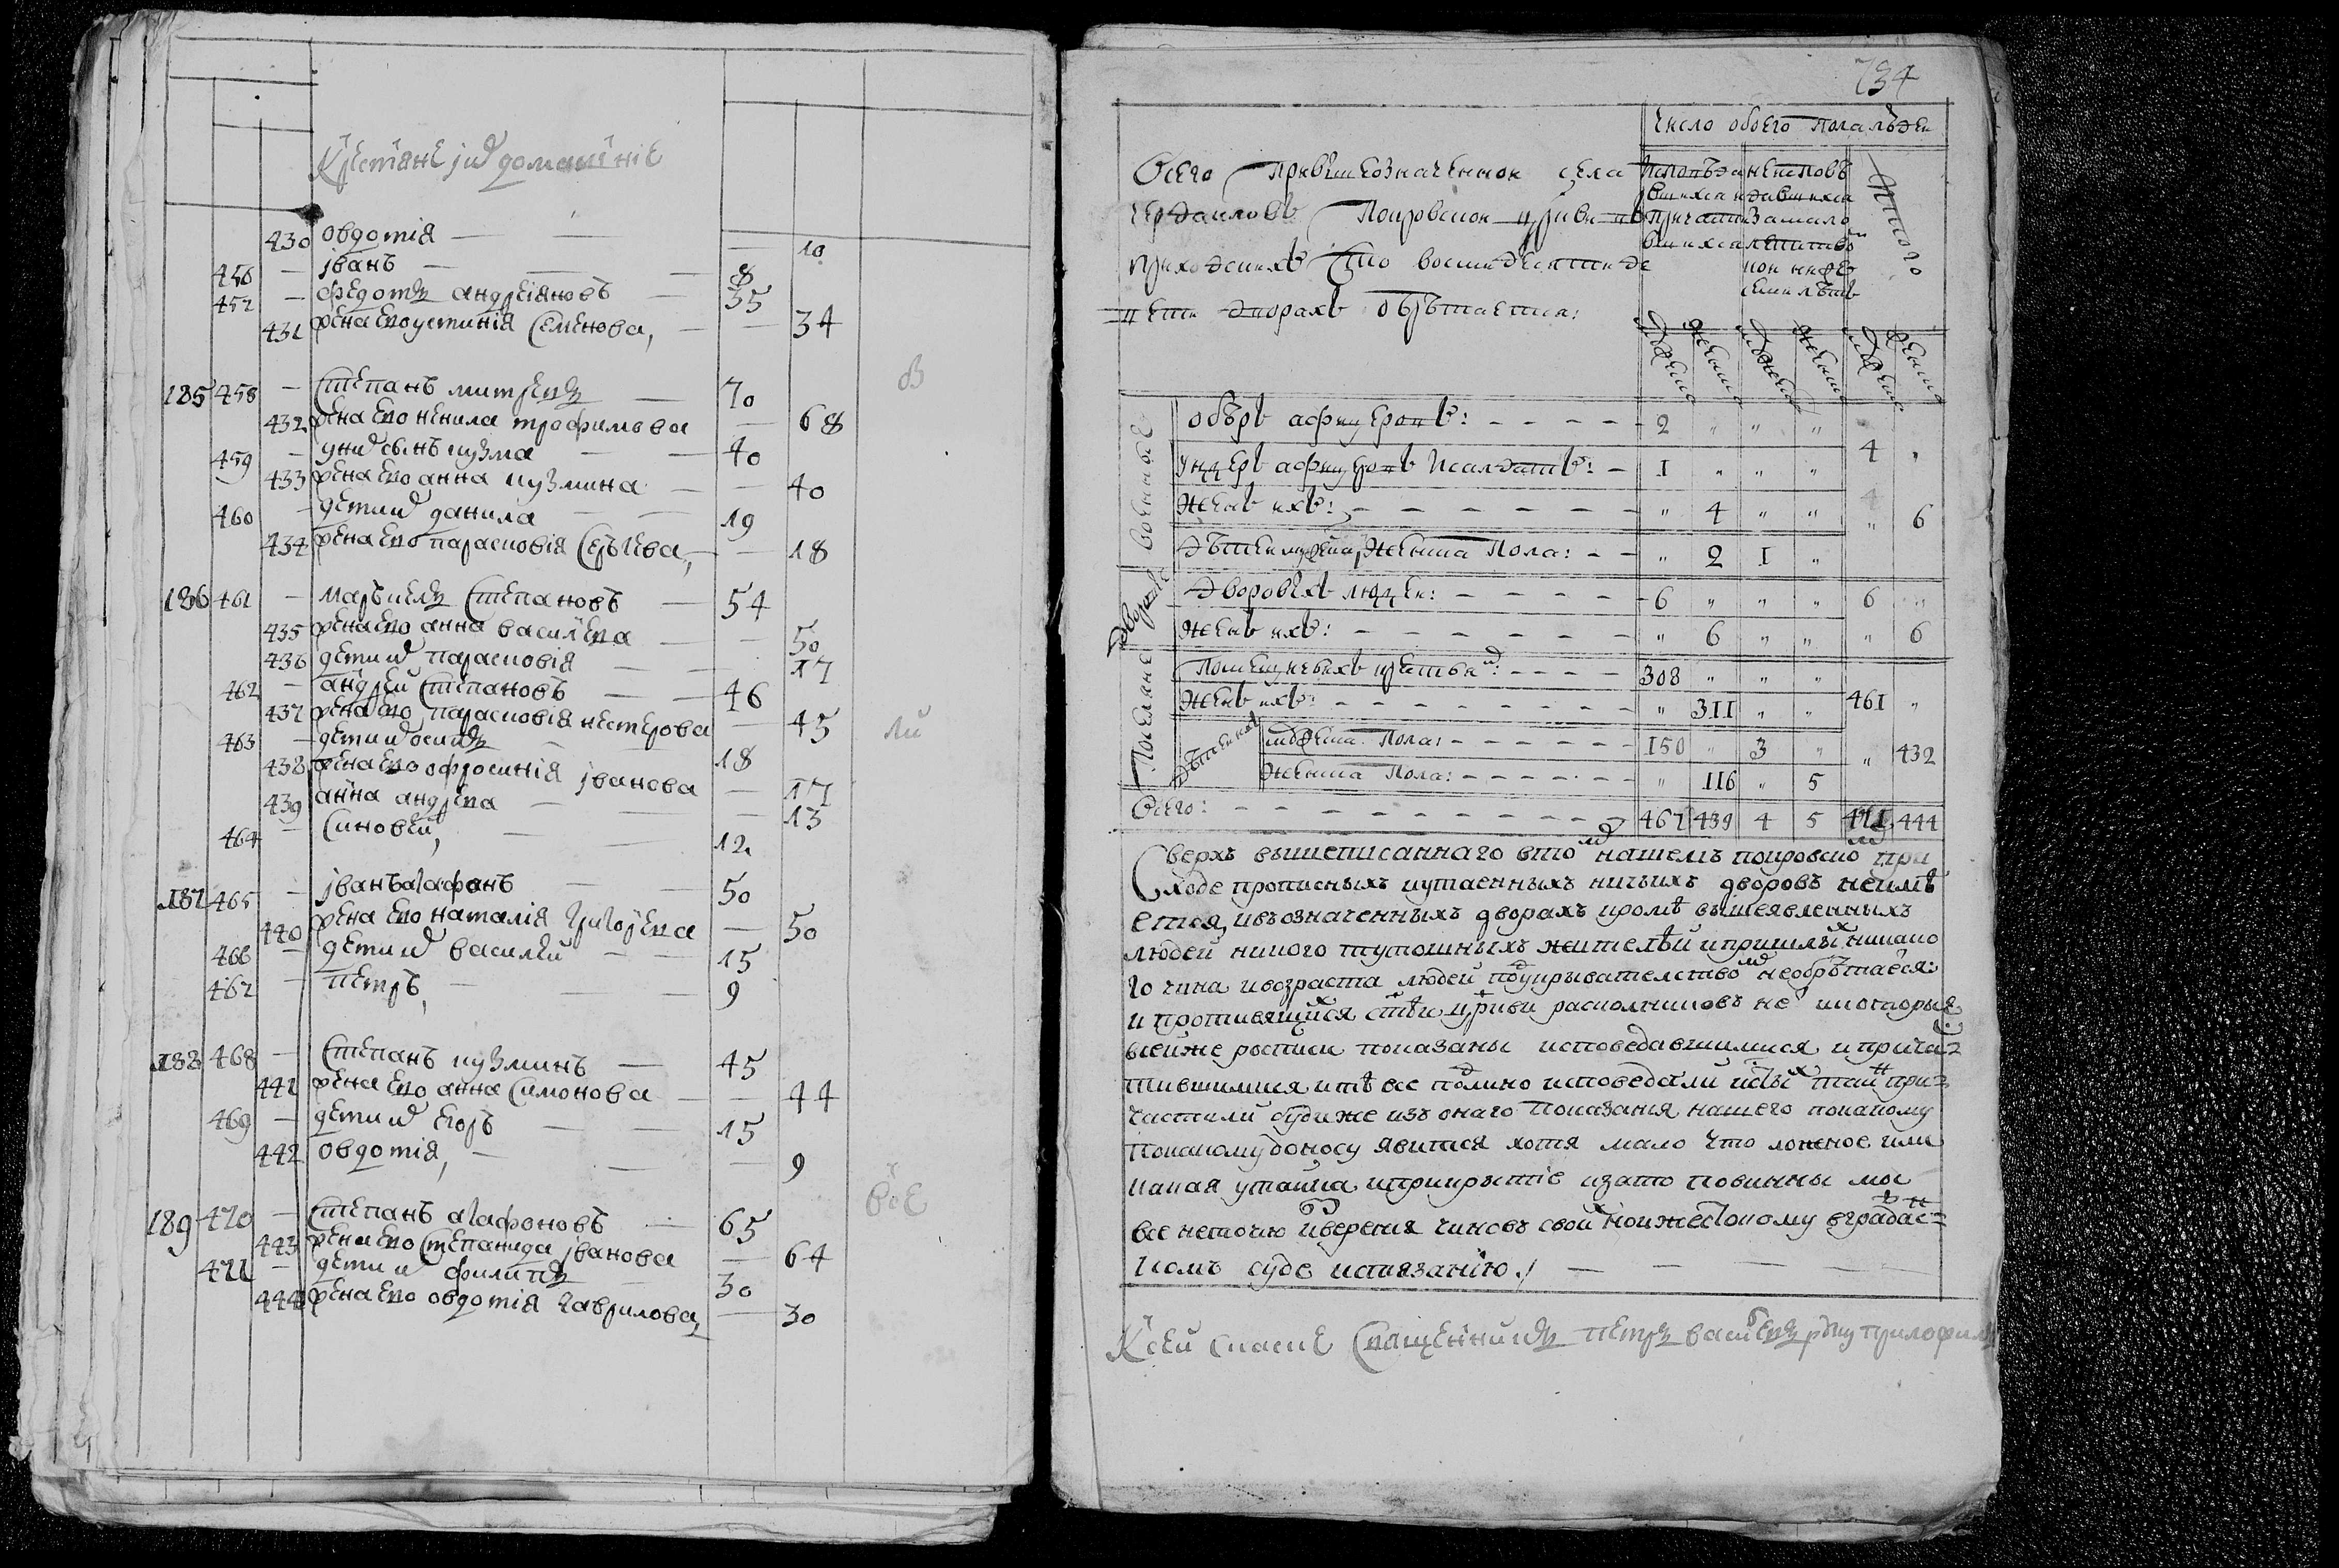 Крестяне и домашніе
430 овдотія — — 10
456 — јванъ — 8
457 — федотъ андреіановъ — 35
431 жена его устинія Семенова, — 34
185 458 — Степанъ митревъ — 70
432 жена его ненила трофимова — 68
459 — у них сынъ кузма — 40
433 жена его анна кузмина — 40
460 — дети их данила — 19
434 жена его парасковія Серьгева, — 18
186 461 — маръкелъ Степановъ — 54
435 жена его анна василева — 50
436 дети их парасковія — 17
462 — андрей Степановъ — 46
437 жена его парасковія нестерова — 45
463 — дети их осипъ — 18
438 жена его офросинія јванова — 17
439 анна андрева — 13
464 — Синовей, — 12
187 465 — јванъ агафонъ — 50
440 жена его наталія григорева — 50
466 — дети их василей — 15
467 — петръ, — 9
188 468 — Степанъ кузминъ — 45
441 жена его анна Симонова — 44
469 — дети их егоръ — 15
442 овдотія, — 9
189 470 — Степанъ агафоновъ — 65
443 жена его Степанида јванова — 64
471 — дети их филипъ — 30
444 жена его овдотія гаврилова, — 30
в
ли
все
734
Число обоего пола людеи
Всего привышеозначеннои села
Покровскои церкви
приходскихъ Сто восмидесяти де
вети дворахъ обретаетца:
Исповеда
вшихся и
причасти
вшихся
Неисповъ
давшихся
за мало
летством
Итого
Мужеска Женска Мужеска Женска Мужеска Женска
Военныя
Обѣръ афицеровъ: — 2 " " " 4 "
ундеръ афицеровъ и салдатъ: — 1 " " "
Женъ ихъ: — " 4 " " " 6
Дѣтеи мужеска, женска пола: — " 2 1 "
Дворовыя
Дворовыхъ людеи: — 6 " " " 6 "
Женъ ихъ: — " 6 " " " 6
Поселяне
Помещичьихъ крестьян: — 308 " " " 461 "
Женъ ихъ: — " 311 " "
Дѣтеи их
мужеска пола: — 150 " 3 " " 432
женска пола: — " 116 " 5
Всего: — 467 439 4 5 471 444
Сверхъ вышеписаннаго втом нашемъ покровском при
ходе прописныхъ иутаенныхъ ничьихъ дворовъ неимѣ
етца, ивъозначенныхъ дворахъ кромѣ вышеявленныхъ
людей никого тутошныхъ жителѣй ипришлых никако
го чина ивозраста людей подукрывателством необрѣтается:
и противящихся стѣи цркви расколниковъ нет икоторыя
всейже росписи показаны исповедавшимися иприча=
тившимися итѣ все подлино исповедали истых таин при=
частили будиже изъ онаго показания нашего покакому
покакому доносу явитися хотя мало что ложное или
какая утаика иприкрытіе изато повинны мы
все неточию извержения чиновъ своих ноижестокому вграждан=
скомъ суде истязанию ./
К сей скаске Священникъ петръ васильевъ руку приложилъ